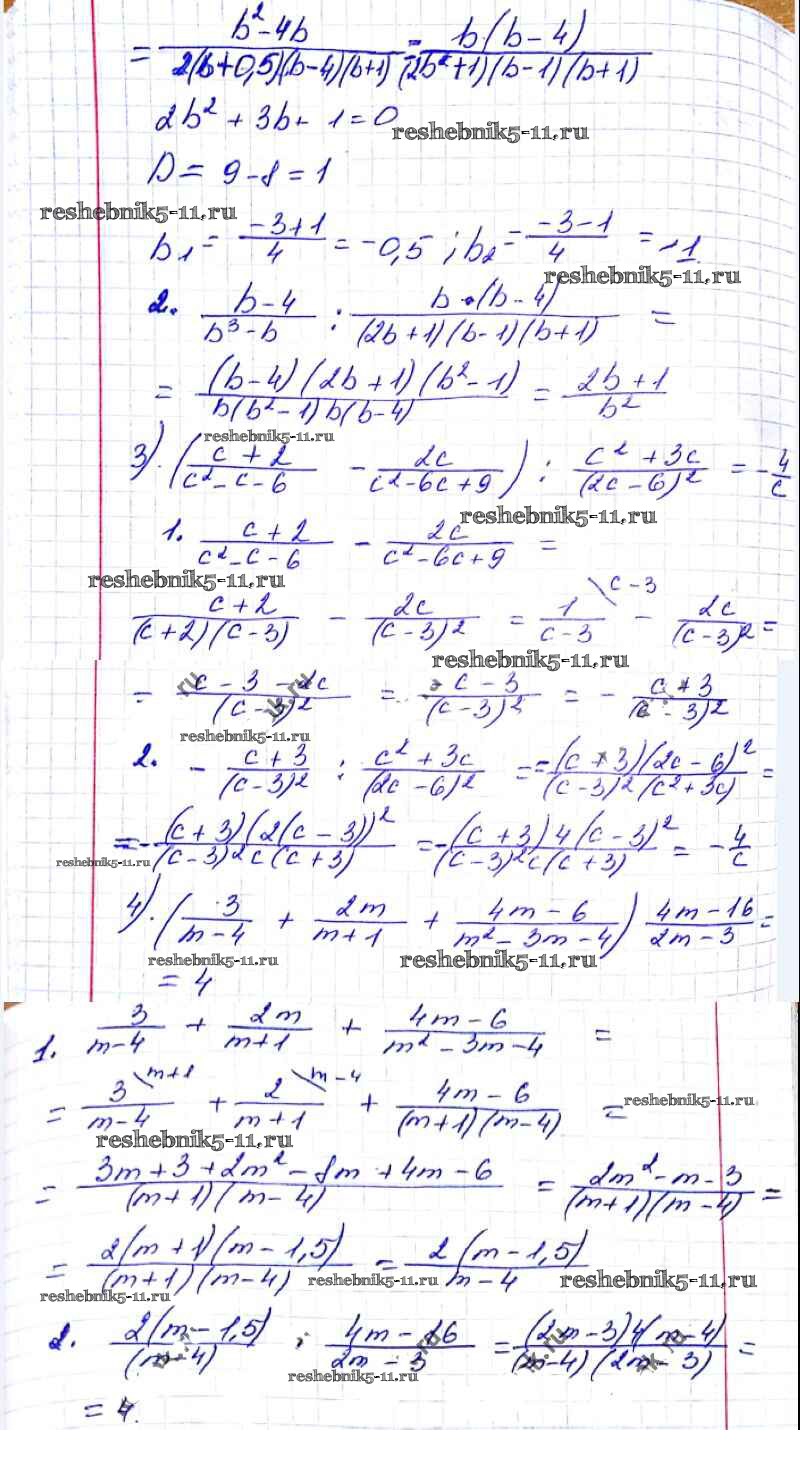 = (b² - 4b)/(2(b+0,5)(b-4)(b+1)) = (b·(b-4))/((2b²+1)(b-1)(b+1))
2b² + 3b + 1 = 0
reshebnik5-11.ru
D = 9 - 8 = 1
reshebnik5-11.ru
b₁ = (-3+1)/4 = -0,5 ; b₂ = (-3-1)/4 = -1
reshebnik5-11.ru
2. (b-4)/(b³-b) : (b·(b-4))/((2b+1)(b-1)(b+1)) =
= ((b-4)(2b+1)(b²-1))/(b(b²-1)b(b-4)) = (2b+1)/b²
reshebnik5-11.ru
3). ((c+2)/(c²-c-6) - 2c/(c²-6c+9)) : (c²+3c)/(2c-6)² = -4/c
reshebnik5-11.ru
1. (c+2)/(c²-c-6) - 2c/(c²-6c+9) =
reshebnik5-11.ru
(c+2)/((c+2)(c-3)) - 2c/(c-3)² = 1/(c-3) \c-3 - 2c/(c-3)² =
reshebnik5-11.ru
= (c-3-2c)/(c-3)² = (-c-3)/(c-3)² = -(c+3)/(c-3)²
reshebnik5-11.ru
2. -(c+3)/(c-3)² : (c²+3c)/(2c-6)² = -((c+3)(2c-6)²)/((c-3)²(c²+3c)) =
= -((c+3)(2(c-3))²)/((c-3)²c(c+3)) = -((c+3)4(c-3)²)/((c-3)²c(c+3)) = -4/c
reshebnik5-11.ru
4). (3/(m-4) + 2m/(m+1) + (4m-6)/(m²-3m-4)) (4m-16)/(2m-3) =
reshebnik5-11.ru reshebnik5-11.ru
= 4
1. 3/(m-4) + 2m/(m+1) + (4m-6)/(m²-3m-4) =
= 3/(m-4) \m+1 + 2/(m+1) \m-4 + (4m-6)/((m+1)(m-4)) =
reshebnik5-11.ru
reshebnik5-11.ru
= (3m+3+2m²-8m+4m-6)/((m+1)(m-4)) = (2m²-m-3)/((m+1)(m-4)) =
= (2(m+1)(m-1,5))/((m+1)(m-4)) = (2(m-1,5))/(m-4)
reshebnik5-11.ru reshebnik5-11.ru reshebnik5-11.ru
2. (2(m-1,5))/(m-4) · (4m-16)/(2m-3) = ((2m-3)4(m-4))/((m-4)(2m-3)) =
reshebnik5-11.ru
= 4.